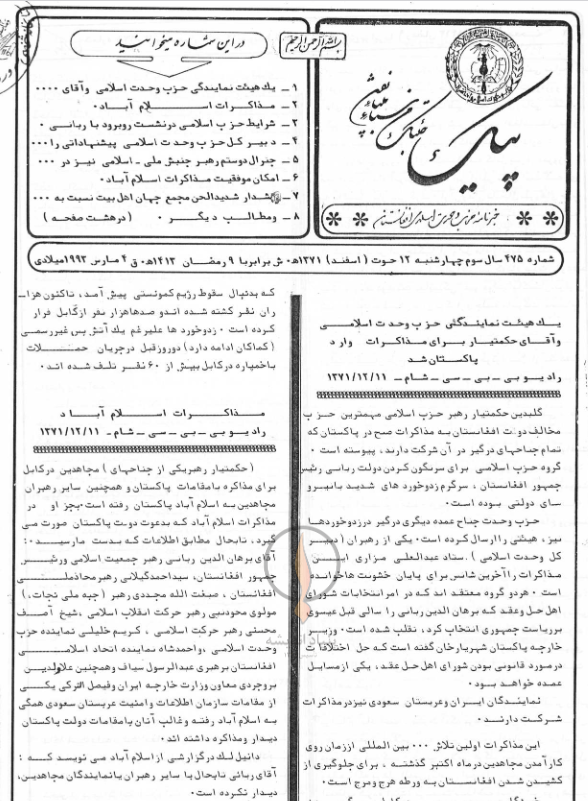 بسم الله الرحمن الرحیم
در این شماره میخوانید
۱ ـ یك هیئت نمایندگی حزب وحدت اسلامی وآقای ۰۰۰۰
۲ ـ مذاکرات اسلام آباد۰
۳ ـ شرایط حزب اسلامی درنشست روبرود با ربانی ۰
۴ ـ دبیر کل حزب وحدت اسلامی پیشنهاداتی را ۰۰۰
۵ ـ جنرال دوستم رهبر جنبش ملی ـ اسلامی نیز در ۰۰۰
۶ ـ امکان موفقیت مذاکرات اسلام آباد۰
۷ ـ هشدار شدیدالحن مجمع جهان اهل بیت نسبت به ۰۰۰
۸ ـ ومطالب دیگر ۰ (درهشت صفحه)
پیک
خبرنامه حزب وحدت اسلامی افغانستان
شماره ۴۷۵ سال سوم چهارشنبه ۱۲ حوت ( اسفند) ۱۳۷۱ه۰ ش برابربا ۹ رمضان ۱۴۱۳ه۰ق ۴ مارس ۱۹۹۳میلادی
یك هیئت نمایندگی حزب وحدت اسلامی
وآقای حکمتیار برای مذاکرات وارد
پاکستان شد
رادیو بی ـ بی ـ سی ـ شام ـ ۱۳۷۱/۱۲/۱۱
گلبدین حکمتیار رهبر حزب اسلامی مهمترین حزب
مخالف دولت افغانستان به مذاکرات صبح در پاکستان که
تمام جناحهای درگیر در آن شرکت دارند، پیوسته است ۰
گروه حزب اسلامی برای سرنگون کردن دولت ربانی رئیس
جمهور افغانستان ، سرگرم زدوخورد های شدید بانیرو
های دولتی بوده است۰
حزب وحدت جناح عمده دیگری درگیر درزدوخوردها
نیز، هیئتی را ارسال کرده است۰ یکی از رهبران (دبیر
کل وحدت اسلامی ) ستاد عبدالعلی مزاری این
مذاکرات را آخرین شانس برای پایان خشونت هاخوانده
است ۰ هردو گروه معتقد اند که در امر انتخابات شورای
اهل حل وعقد که برهان الدین ربانی را سالی قبل عیسوی
برریاست جمهوری انتخاب کرد، تقلب شده است۰ وزیر
خارجه پاکستان شهریارخان گفته است که حل اختلافات
درمورد قانونی بودن شورای اهل حل عقد، یکی ازمسایل
عمده خواهد بود۰
نمایندگان ایران وعربستان سعودی نیزدرمذاکرات
شرکت دارند۰
این مذاکرات اولین تلاش ۰۰۰ بین المللی اززمان روی
کارآمدن مجاهدین درماه اکتبر گذشته ، برای جلوگیری از
کشیدن شدن افغانستان به ورطه هرج ومرج است۰
که بدنبال سقوط رژیم کمونستی پیش آمد، تاکنون هزا‌ـ
ران نفر کشته شده اندو صدهاهزار نفر ازکابل فرار
کرده است ۰ زدوخورد ها علیرغم یك آتش بس غیررسمی
(کماکان ادامه دارد) دوروزقبل درجریان حملات
باخمپاره درکابل بیش از ۶۰ نفر تلف شده اند۰
مذاکرات اسلام آباد
رادیو بی ـ بی ـ سی ـ شام ـ ۱۳۷۱/۱۲/۱۱
(حکمتیار رهبریکی از جناحهای ) مجاهدین درکابل
برای مذاکره بامقامات پاکستان و همچنین سایر رهبران
مجاهدین به اسلام آباد پاکستان رفته است۰ بجز او در
مذاکرات اسلام آباد که بدعوت دولت پاکستان صورت می
گیرد ، تابحال مطابق اطلاعات که بدست مارسیده:
آقای برهان الدین ربانی رهبر جمعیت اسلامی ورئیس
جمهور افغانستان، سیداحمدگیلانی رهبر محاذملی
افغانستان ، صبغت الله مجددی رهبر (جبهه ملی نجات،)
مولوی محمدنبی رهبر حرکت انقلاب اسلامی ،شیخ آصف
محسنی رهبر حرکت اسلامی ، کریم خلیلی نماینده حزب
وحدت اسلامی ،واحمدشاه نماینده اتحاد اسلامی
افغانستان برهبری عبدالرسول سیاف وهمچنین علاوالدین
بروجردی معاون وزارت خارجه ایران وفیصل الترکی یکی
از مقامات سازمان اطلاعات وامنیت عربستان سعودی همگی
به اسلام آباد رفته وغالب آنان بامقامات دولت پاکستان
دیدار ومذاکره داشته اند۰
دانیل لك درگزارشی ازاسلام آباد می نویسد که :
آقای ربانی تابحال با سایر رهبران یانمایندگان مجاهدین،
دیدار نکرده است۰